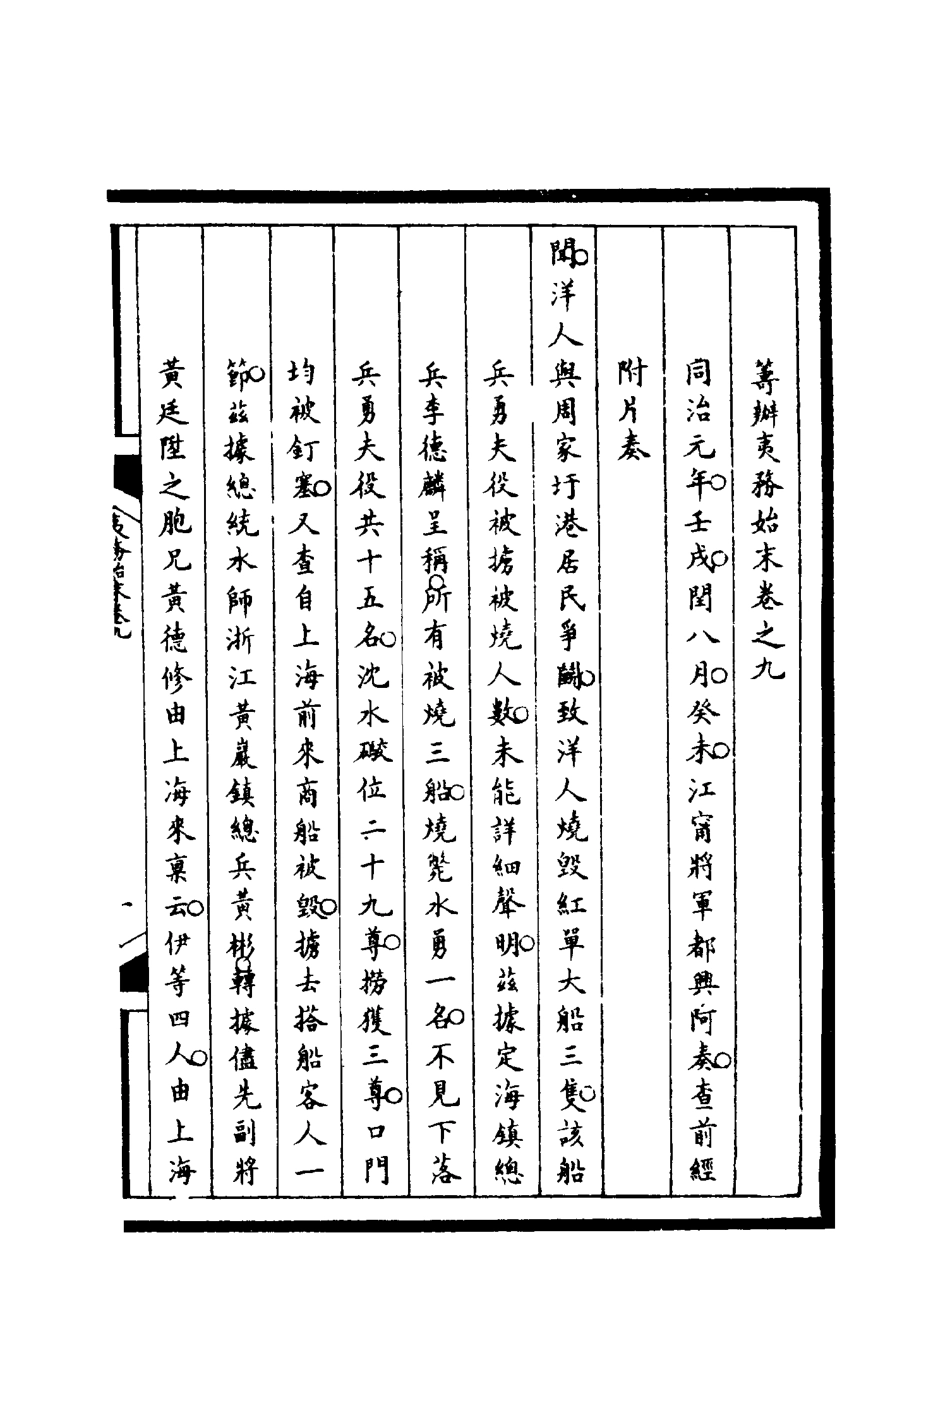 籌辦夷務始末卷之九
同治元年。壬戌。閏八月。癸未。江甯將軍都興阿奏。查前經
附片奏
聞。洋人與周家圩港居民爭鬬。致洋人燒毀紅單大船三隻。該船
兵勇夫役被擄被燒人數。未能詳細聲明。茲據定海鎮總
兵李德麟呈稱。所有被燒三船。燒斃水勇一名。不見下落
兵勇夫役共十五名。沈水礮位二十九尊。撈獲三尊。口門
均被釘塞。又查自上海前來商船被毀。擄去搭船客人一
節。茲據總統水師浙江黃巖鎮總兵黃彬。轉據儘先副將
黃廷陞之胞兄黃德修由上海來稟云。伊等四人。由上海
夷務始末卷九
一